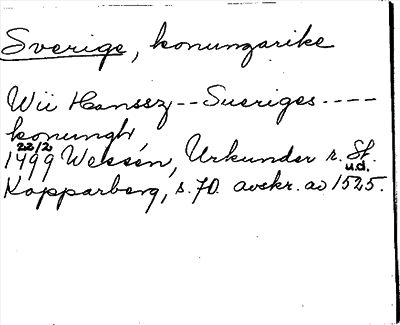 Sverige, konungarike
Wii Hanssz -- Sueriges ----
konungh,
22/2
1499 Wessén, Urkunder r. St.
u.d.
Kopparberg, s. 70. avskr. av 1525.